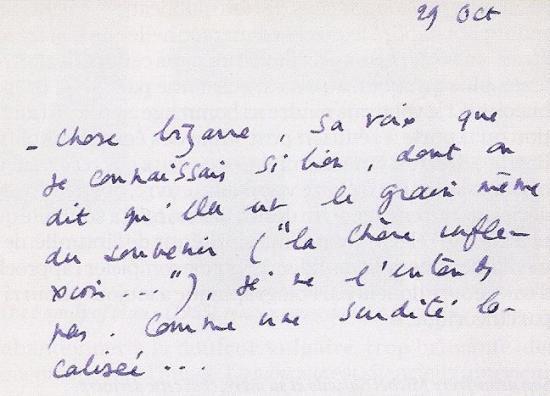 29 Oct
- Chose bizarre, sa voix que
je connaissais si bien, dont on
dit qu'elle est le grain même
du souvenir ("la chère infle-
xion..."), je ne l'entends
pas. Comme une surdité lo-
calisée...